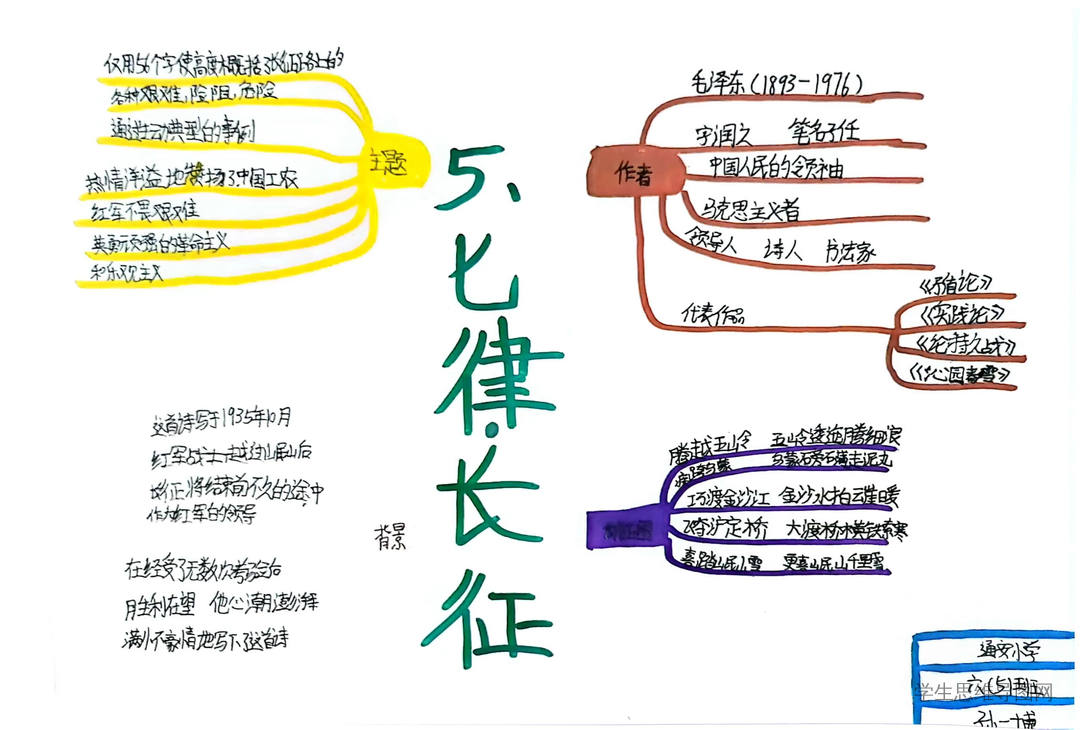 5、七律·长征
主题
仅用56个字使高度概括了长征路上的
各种艰难,险阻,危险
通过生动典型的事例
热情洋溢地赞扬了中国工农
红军不畏艰难
英勇顽强的革命主义
和乐观主义
作者
毛泽东(1893-1976)
字润之 笔名子任
中国人民的领袖
马克思主义者
领导人 诗人 书法家
代表作品
《矛盾论》
《实践论》
《论持久战》
《沁园春雪》
背景
这首诗写于1935年10月
红军战士越过岷山后
长征将结束前不久的途中
作为红军的领导
在经受了无数次考验后
胜利在望 他心潮澎湃
满怀豪情地写下了这首诗
腾越五岭 五岭逶迤腾细浪
乌蒙磅礴走泥丸
巧渡金沙江 金沙水拍云崖暖
飞夺泸定桥 大渡桥横铁索寒
喜踏岷山雪 更喜岷山千里雪
通安小学
六(5)班
孙一博
学生思维导图网